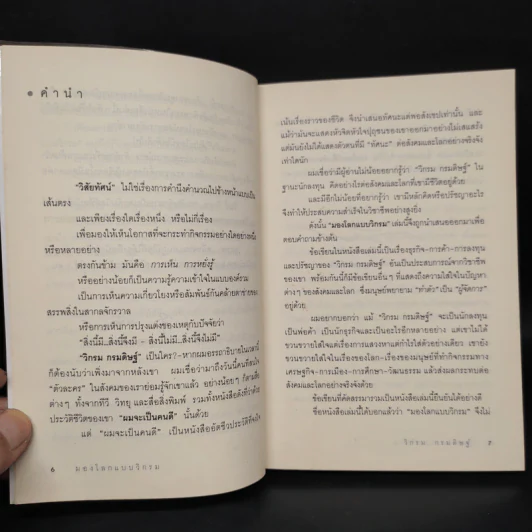 คำนำ
"วิสัยทัศน์" ไม่ใช่เรื่องการคำนึงคำนวณไปข้างหน้าแบบเป็น
เส้นตรง
และเพียงเรื่องใดเรื่องหนึ่ง หรือไม่กี่เรื่อง
เพื่อมองให้เห็นโอกาสที่จะกระทำกิจกรรมอย่างใดอย่างหนึ่ง
หรือหลายอย่าง
ตรงกันข้าม มันคือ การเห็น การหยั่งรู้
หรืออย่างน้อยก็เป็นความรู้ความเข้าใจในแบบองค์รวม
เป็นการเห็นความเกี่ยวโยงหรือสัมพันธ์กันคล้ายตาข่ายของ
สรรพสิ่งในสากลจักรวาล
หรือการเห็นการปรุงแต่งของเหตุกับปัจจัยว่า
"สิ่งนี้มี..สิ่งนี้จึงมี - สิ่งนี้ไม่มี..สิ่งนี้จึงไม่มี"
"วิกรม กรมดิษฐ์" เป็นใคร?-หากผมอรรถาธิบายในเวลานี้
ก็ต้องนับว่าเพิ่งมาจากหลังเขา ผมเชื่อว่ามาถึงวันนี้คนที่สนใจ
"ตัวละคร" ในสังคมของเราย่อมรู้จักเขาแล้ว อย่างน้อยๆ ก็ตามสื่อ
ต่างๆ ทั้งจากทีวี วิทยุ และสื่อสิ่งพิมพ์ รวมทั้งหนังสือดังที่ว่าด้วย
ประวัติชีวิตของเขา "ผมจะเป็นคนดี" นั่นด้วย
แต่ "ผมจะเป็นคนดี" เป็นหนังสืออัตชีวประวัติที่
๖ มองโลกแบบวิกรม
เน้นเรื่องราวของชีวิต จึงนำเสนอทัศนะแต่พอสังเขปเท่านั้น และ
แม้ว่ามันจะแสดงหัวจิตหัวใจปุถุชนของเขาออกมาอย่างไม่เสแสร้ง
แต่มันยังไม่ได้แสดงตัวตนที่มี "ทัศนะ" ต่อสังคมและโลกอย่างจริงจัง
เท่าใดนัก
ผมเชื่อว่ามีผู้อ่านไม่น้อยอยากรู้ว่า "วิกรม กรมดิษฐ์" ใน
ฐานะนักลงทุน คิดอย่างไรต่อสังคมและโลกที่เขามีชีวิตอยู่ด้วย
และมีอีกไม่น้อยที่อยากรู้ว่า เขามีหลักคิดหรือปรัชญาอะไร
จึงทำให้ประสบความสำเร็จในวิชาชีพอย่างสูงยิ่ง
ดังนั้น "มองโลกแบบวิกรม" เล่มนี้จึงถูกนำเสนอออกมาเพื่อ
ตอบคำถามข้างต้น
ข้อเขียนในหนังสือเล่มนี้เป็นเรื่องราวธุรกิจ-การค้า-การลงทุน
และปรัชญาของ "วิกรม กรมดิษฐ์" อันเป็นประสบการณ์จากวิชาชีพ
ของเขา พร้อมกันนี้ก็มีข้อเขียนอื่นๆ ที่แสดงถึงความใส่ใจในปัญหา
ต่างๆ ของสังคมและโลก ซึ่งมนุษย์พยายาม "ทำตัว" เป็น "ผู้จัดการ"
อยู่ด้วย
ผมอยากบอกว่า แม้ "วิกรม กรมดิษฐ์" จะเป็นนักลงทุน
เป็นพ่อค้า เป็นนักธุรกิจและเป็นอะไรอีกหลายอย่าง แต่เขาไม่ได้
ขวนขวายใส่ใจแต่เรื่องการแสวงหาแต่กำไรใส่ตัวอย่างเดียว เขายัง
ขวนขวายใส่ใจในเรื่องของโลก-เรื่องของมนุษย์ที่ทำกิจกรรมทาง
เศรษฐกิจ-การเมือง-การศึกษา-วัฒนธรรม แล้วส่งผลกระทบต่อ
สังคมและโลกอย่างจริงจังด้วย
ข้อเขียนที่คัดสรรมารวมเป็นหนังสือเล่มนี้ยืนยันได้อย่างดี
ชื่อหนังสือเล่มนี้ได้บอกแล้วว่า "มองโลกแบบวิกรม" จึงไม่
วิกรม กรมดิษฐ์ ๗